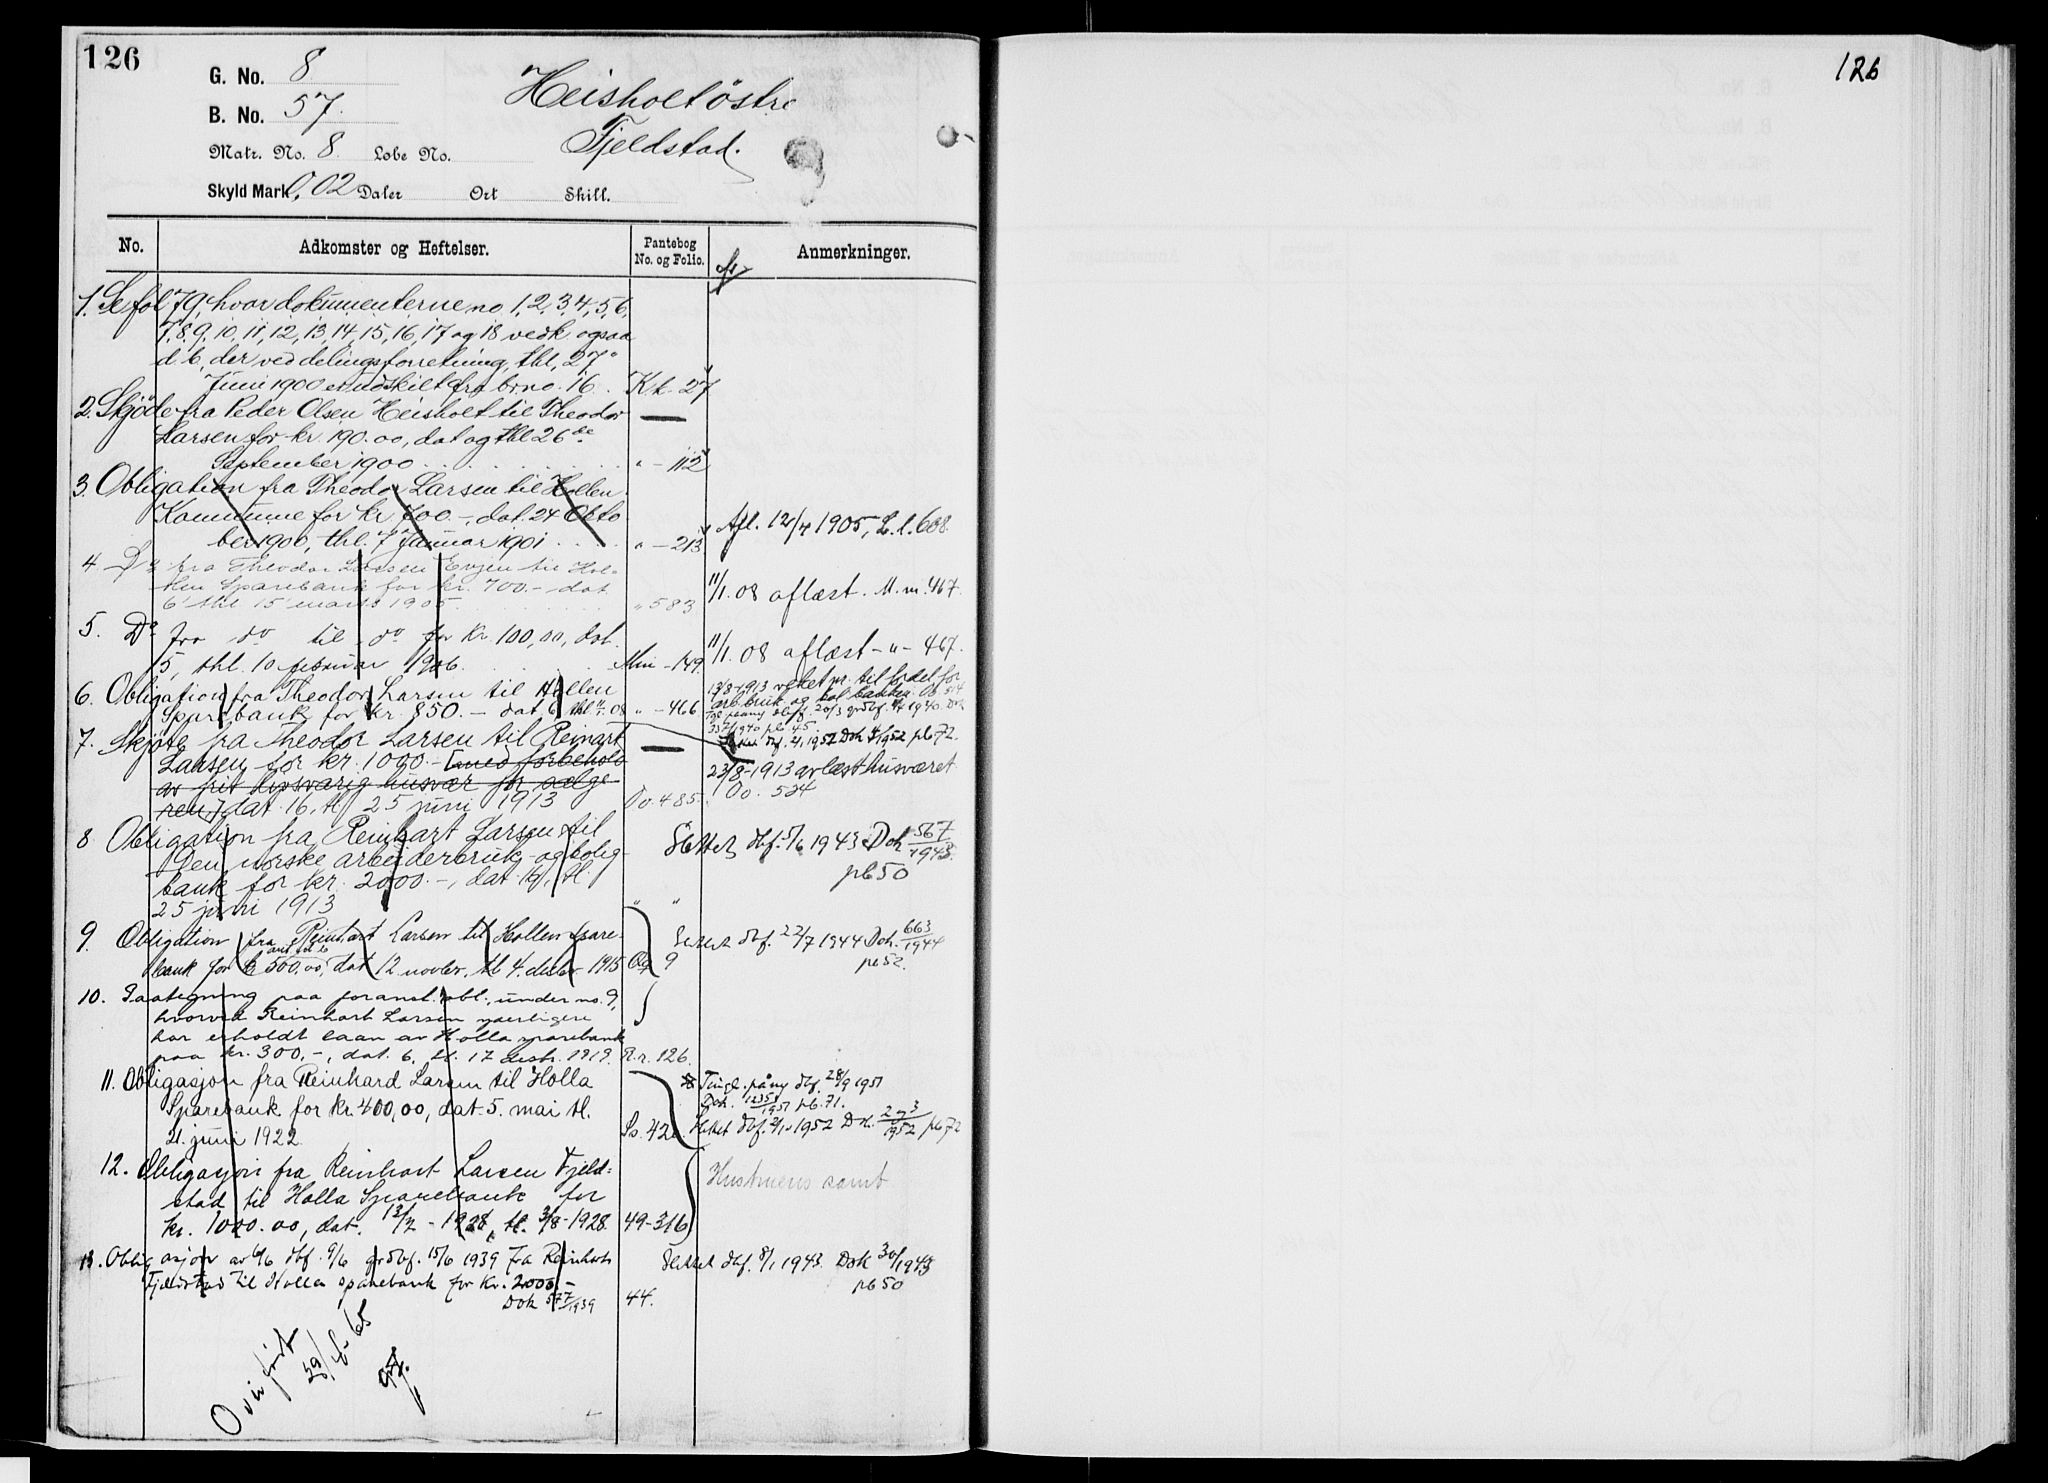 126
G. No. 8
B. No. 57.
Matr. No. 8. Løbe No.
Skyld Mark 0,02 Daler Ort Skill.
Heisholt östre
Fjeldstad.
No. Adkomster og Heftelser. Pantebog No. og Folio. Anmerkninger.
1. Se fol 79, hvor dokumenterne no 1, 2, 3, 4, 5, 6,
7, 8, 9, 10, 11, 12, 13, 14, 15, 16, 17 og 18 vedk ogsaa
d. b, der ved delingsforretning, thl, 27
Juni 1900 er udskilt fra brno. 16. K k. 27
2. Skjøde fra Peder Olsen Heisholt til Theodor
Larsen for kr. 190.00, dat og thl 26de
September 1900 " - 112
3. Obligation fra Theodor Larsen til Hollen
Kommune for kr 700.-, dat. 24 Okto
ber 1900, thl. 7 Januar 1901 " - 213 Afl. 12/4 1905, L. l. 608.
4. Do fra Theodor Larsen Evjen til Hol-
len Sparebank for kr. 700.- dat
6 thl 15 marts 1905. " 583 11/1. 08 aflæst. M. m. 467.
5. Do fra do til do for kr. 100,00, dat.
5, thl. 10 februar 1906. Mm - 149 11/1. 08 aflæst - " - 467.
6. Obligation fra Theodor Larsen til Hollen
Sparebank for kr. 850.- dat 6 thl 11/1. 08 " - 466
13/8-1913 veket pr. til fordel for
arb. bruk og bol. banken. Oo. 514
7. Skjøte fra Theodor Larsen til Reinart
Larsen for kr. 1000.- (med forbehold
av frit livsvarig husvær for sælge
ren,) dat 16, tl 25 juni 1913 Oo. 485.
23/8-1913 avlæst husværet
Oo. 524
8 Obligation fra Reinhart Larsen til
Den norske arbeiderbruk- og bolig-
bank for kr. 2000.-, dat 16, tl.
25 juni 1913 " "
Slettet dbf. 5/6 1943 Dok 567/1943.
pb 50
9. Obligation fra Reinhart Larsen til Hollen spare-
bank for kr 500.00, dat 12 novbr. tl 4. desbr. 1915 Qq 9
Slettet dbf. 22/7 1944 Dok. 663/1944
pb 52.
10. Paategning paa foranst. obl., under no. 9,
hvorved Reinhart Larsen yderligere
har erholdt laan av Holla sparebank
paa kr. 300,-, dat. 6, tl. 17 desbr. 1919. R. r. 126.
11. Obligasjon fra Reinhard Larsen til Holla
Sparebank for kr. 400,00, dat 5. mai tl.
21. juni 1922. Ss. 42
Tingl. påny dbf. 28/9 1951
Dok. 1951 pb. 71.
Slettet dbf. 1952 Dok. 1952 pb 72
12. Obligasjon fra Reinhart Larsen Fjeld-
stad til Holla Sparebank for
kr. 1000.00, dat. 13/2 - 1928, tl. 3/8-1928. 49-316
Hustruens samt.
13. Obligasjon av 6/6 dbf. 9/6 grdbf. 15/6 1939 fra Reinhart
Fjeldstad til Holla sparebank for kr. 2000,-
Dok 577/1939 44.
Slettet dbf. 8/1 1943. Dok 30/1943
pb 50
Overført
126